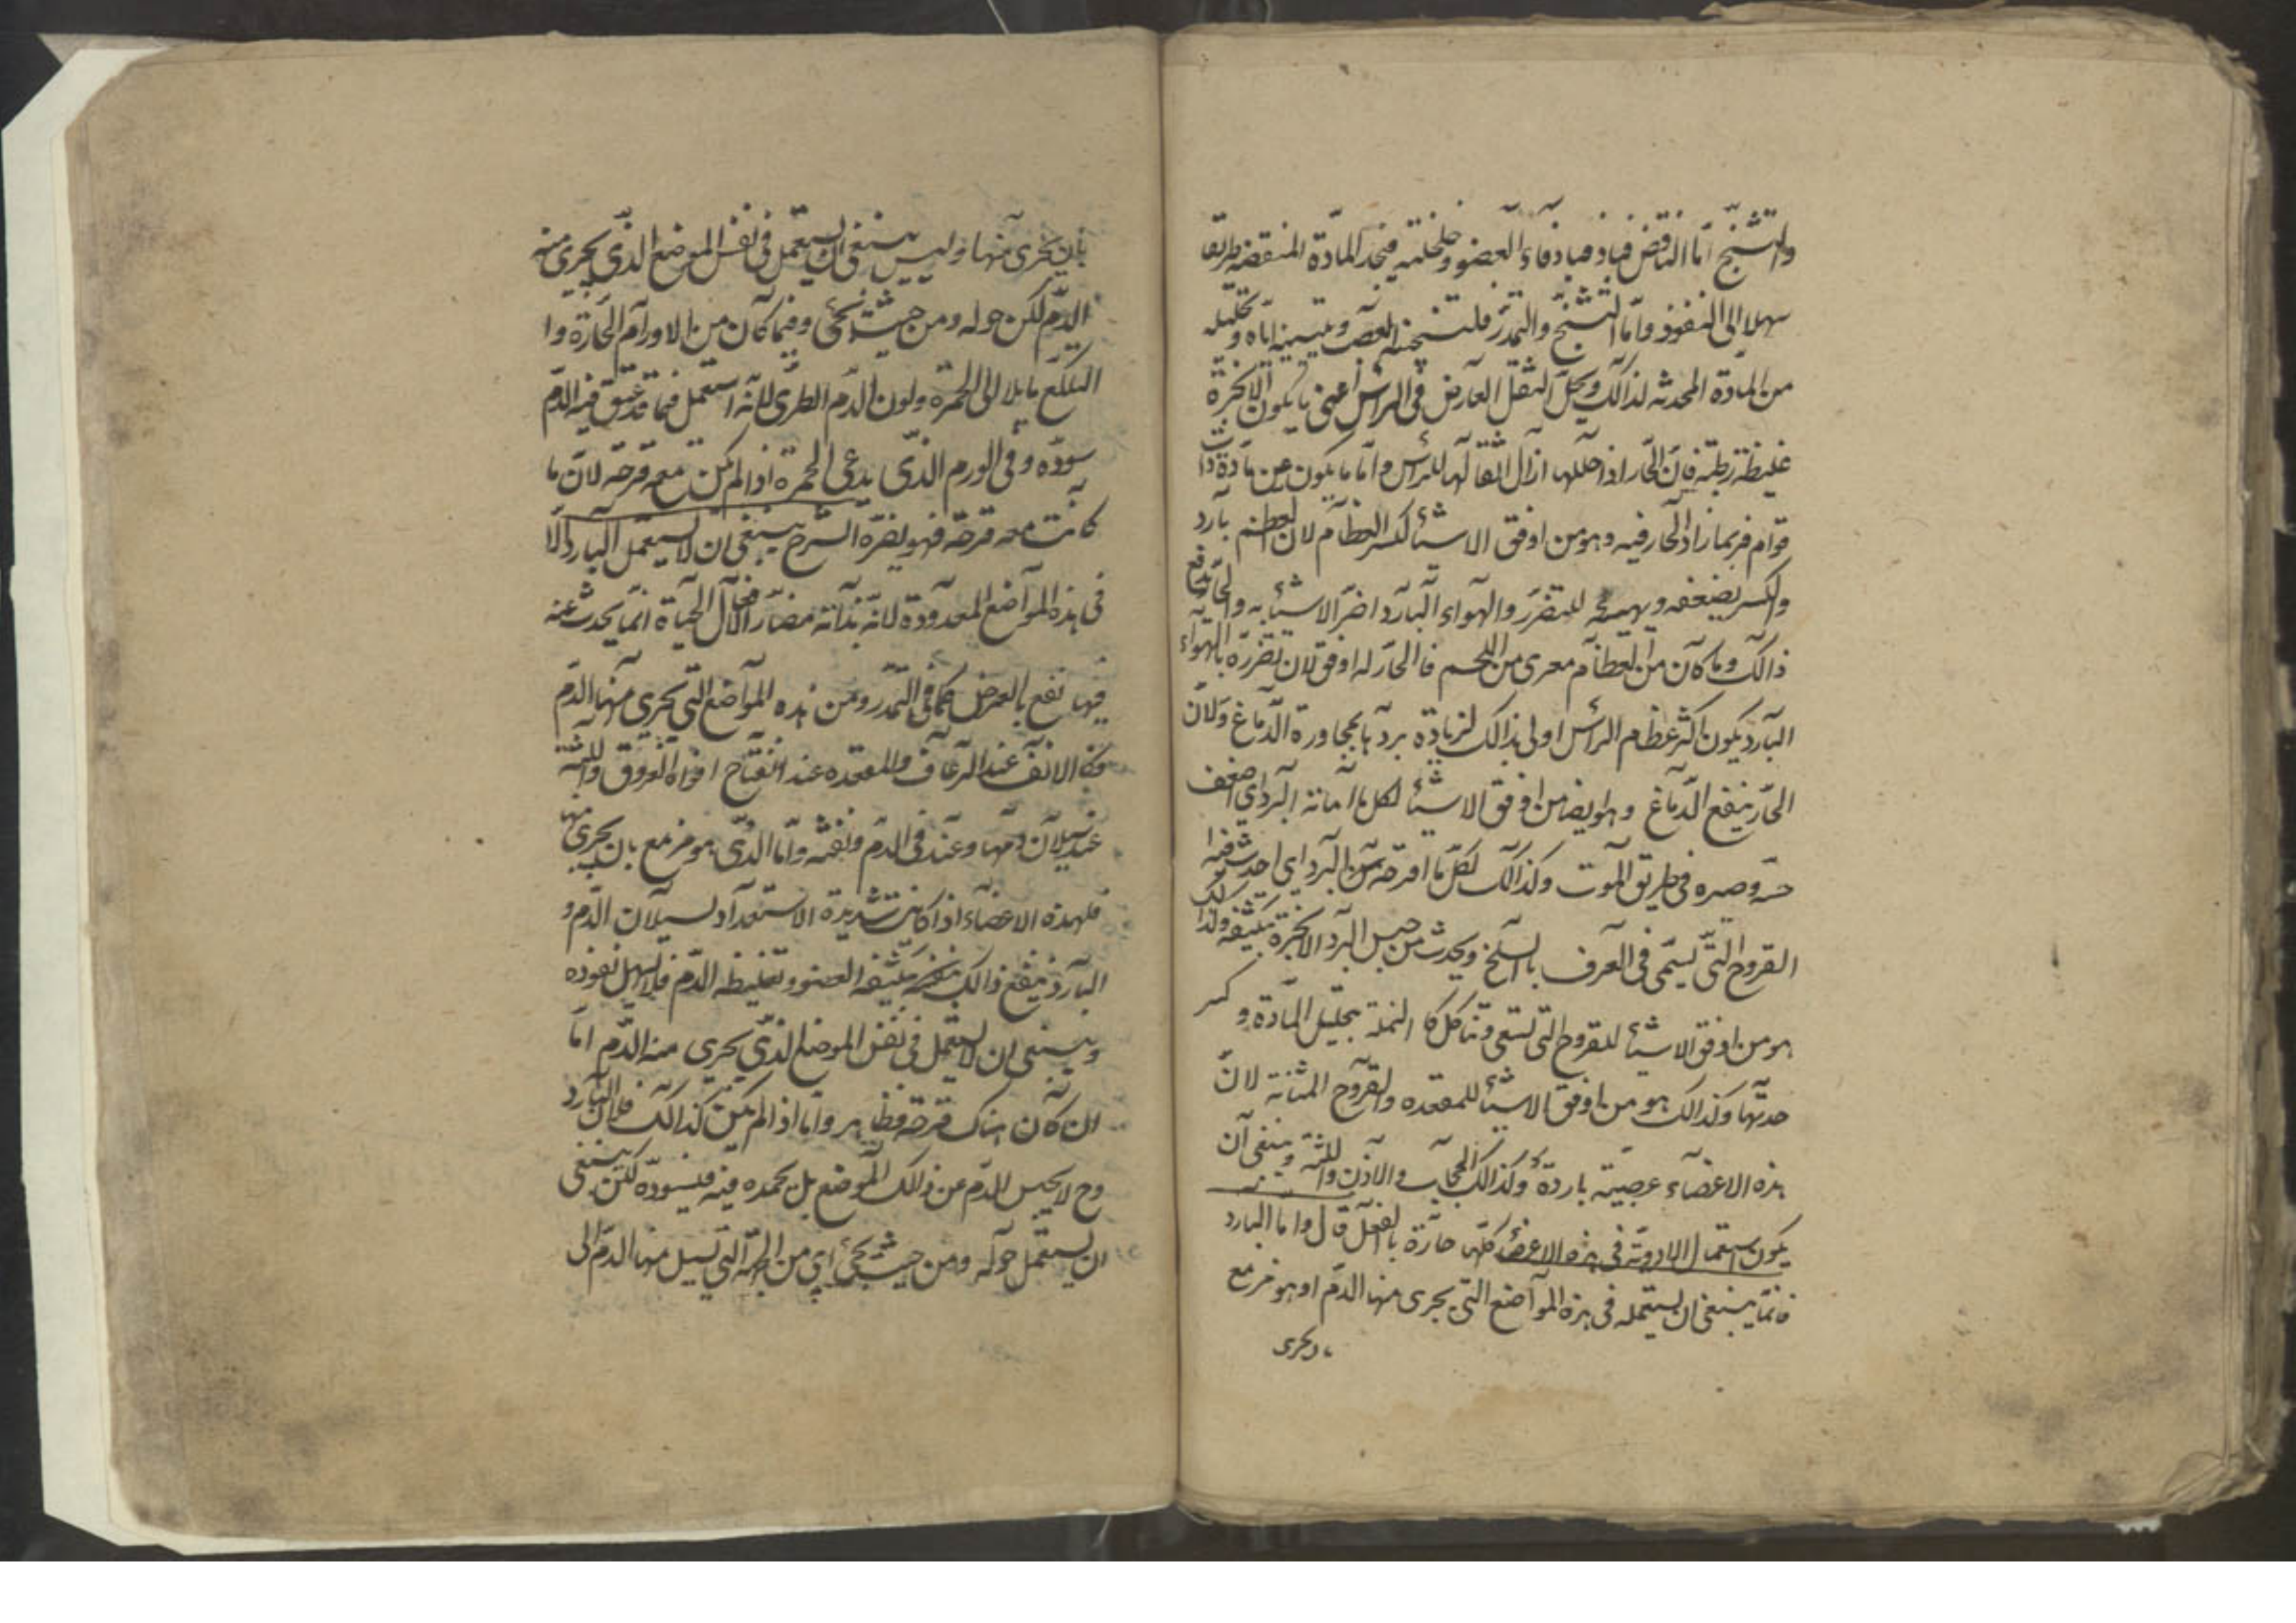 والتشنج اما النافض فباذفباذفاء العضو وخلخلته فيجد المادة المنقضه طريقا
سهلا الى النفوذ واما التشنج والتمدد فلتسخينه العصب وتليينه اياه وتحليله
من المادة المحدثه لذالك ويحل الثقل العارض فى الراس اعنى ما يكون الابخرة
غليظة رطبة فان الحار اذا حللها ازال اثقالها للراس واما ما يكون عن مادة ذات
قوام فربما زاد الحار فيه وهو من اوفق الاشياء لكسر العظام لان العظم بارد
والكسر يضعفه ويهيئه للتضرر والهواء البارد اضر الاشياء به والحار يدفع
ذالك وما كان من العظام معرى من اللحم فالحار له اوفق لان تضرره بالهواء
البارد يكون اكثر عظام الراس اولى بذالك لزيادة بردها بمجاورة الدماغ ولان
الحار ينفع الدماغ وهو ايضا من اوفق الاشياء لكل ما اماته البرد اى اضعف
حسه وصيره فى طريق الموت وكذالك لكل ما اقرحه من البرد اى احدث فيه
القروح التى تسمى فى العرف بالسلخ ويحدث من حبس البرد الابخرة بتكثيفه ولذالك
هو من اوفق الاشياء للقروح التى تسعى وتتاكل كا النملة بتحليل المادة وكسر
حدتها وكذالك هو من اوفق الاشياء للمقعده ولقروح المثانة لان
هذه الاعضاء عصبية باردة وكذالك الحجاب والاذن واللثة وينبغى ان
يكون استعمال الادوية فى هذه الاعضاء كلها حارة بالفعل قال واما البارد
فانما ينبغى ان يستعمله فى هذه المواضع التى يجرى منها الدم او هو مزمع
بان يجرى منها وليس ينبغى ان يستعمل فى نفس الموضع الذى يجرى منه
الدم لكن حوله ومن حيث يجئ وفيما كان من الاورام الحارة وا
التلكع مايلا الى الحمرة ولون الدم الطرى لانه استعمل فيما قد عتق فيه الدم
سوده وفى الورم الذى يدعى الحمرة اذا لم يكن معه قرحة لان ما
كانت معه قرحة فهو يضره الشرح ينبغى ان لا يستعمل البارد الا
فى هذه المواضع المعدودة لانه بذاته مضار الحال الحياة انما يحدث عنه
فيها نفع بالعرض كما فى التمدد ومن هذه المواضع التى يجرى منها الدم
وفى الانف عند الرعاف والمقعده عند انفتاح افواه العروق واللثة
عند سيلان دمها وعند قى الدم ونفثه واما الذى هو مزمع بان يجرى منها
فلهذه الاعضاء اذا كانت شديدة الاستعداد لسيلان الدم و
البارد ينفع ذالك بتكثيفه العضو وتغليظه الدم فلا يسهل نفوذه
وينبغى ان لا يستعمل فى نفس الموضع الذى يجرى منه الدم اما
ان كان هناك قرحة فظاهر واما اذا لم يكن كذالك فلان البارد
وح لا يحبس الدم عن ذالك الموضع بل يجمده فيه فيسوده لكن ينبغى
ان يستعمل حوله ومن حيث يجئ اى من الجهة التى تسيل منها الدم الى